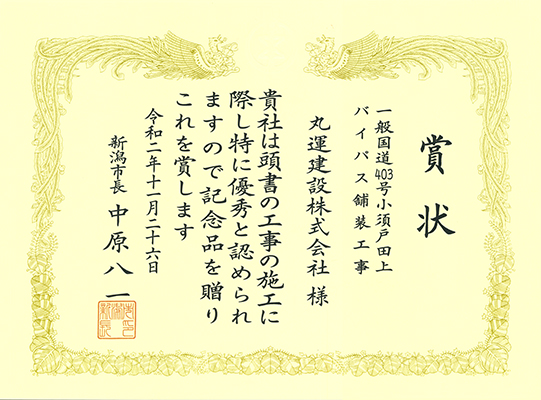 賞状
一般国道403号小須戸田上
バイパス舗装工事
丸運建設株式会社 様
貴社は頭書の工事の施工に
際し特に優秀と認められ
ますので記念品を贈り
これを賞します
令和二年十一月二十六日
新潟市長 中原八一